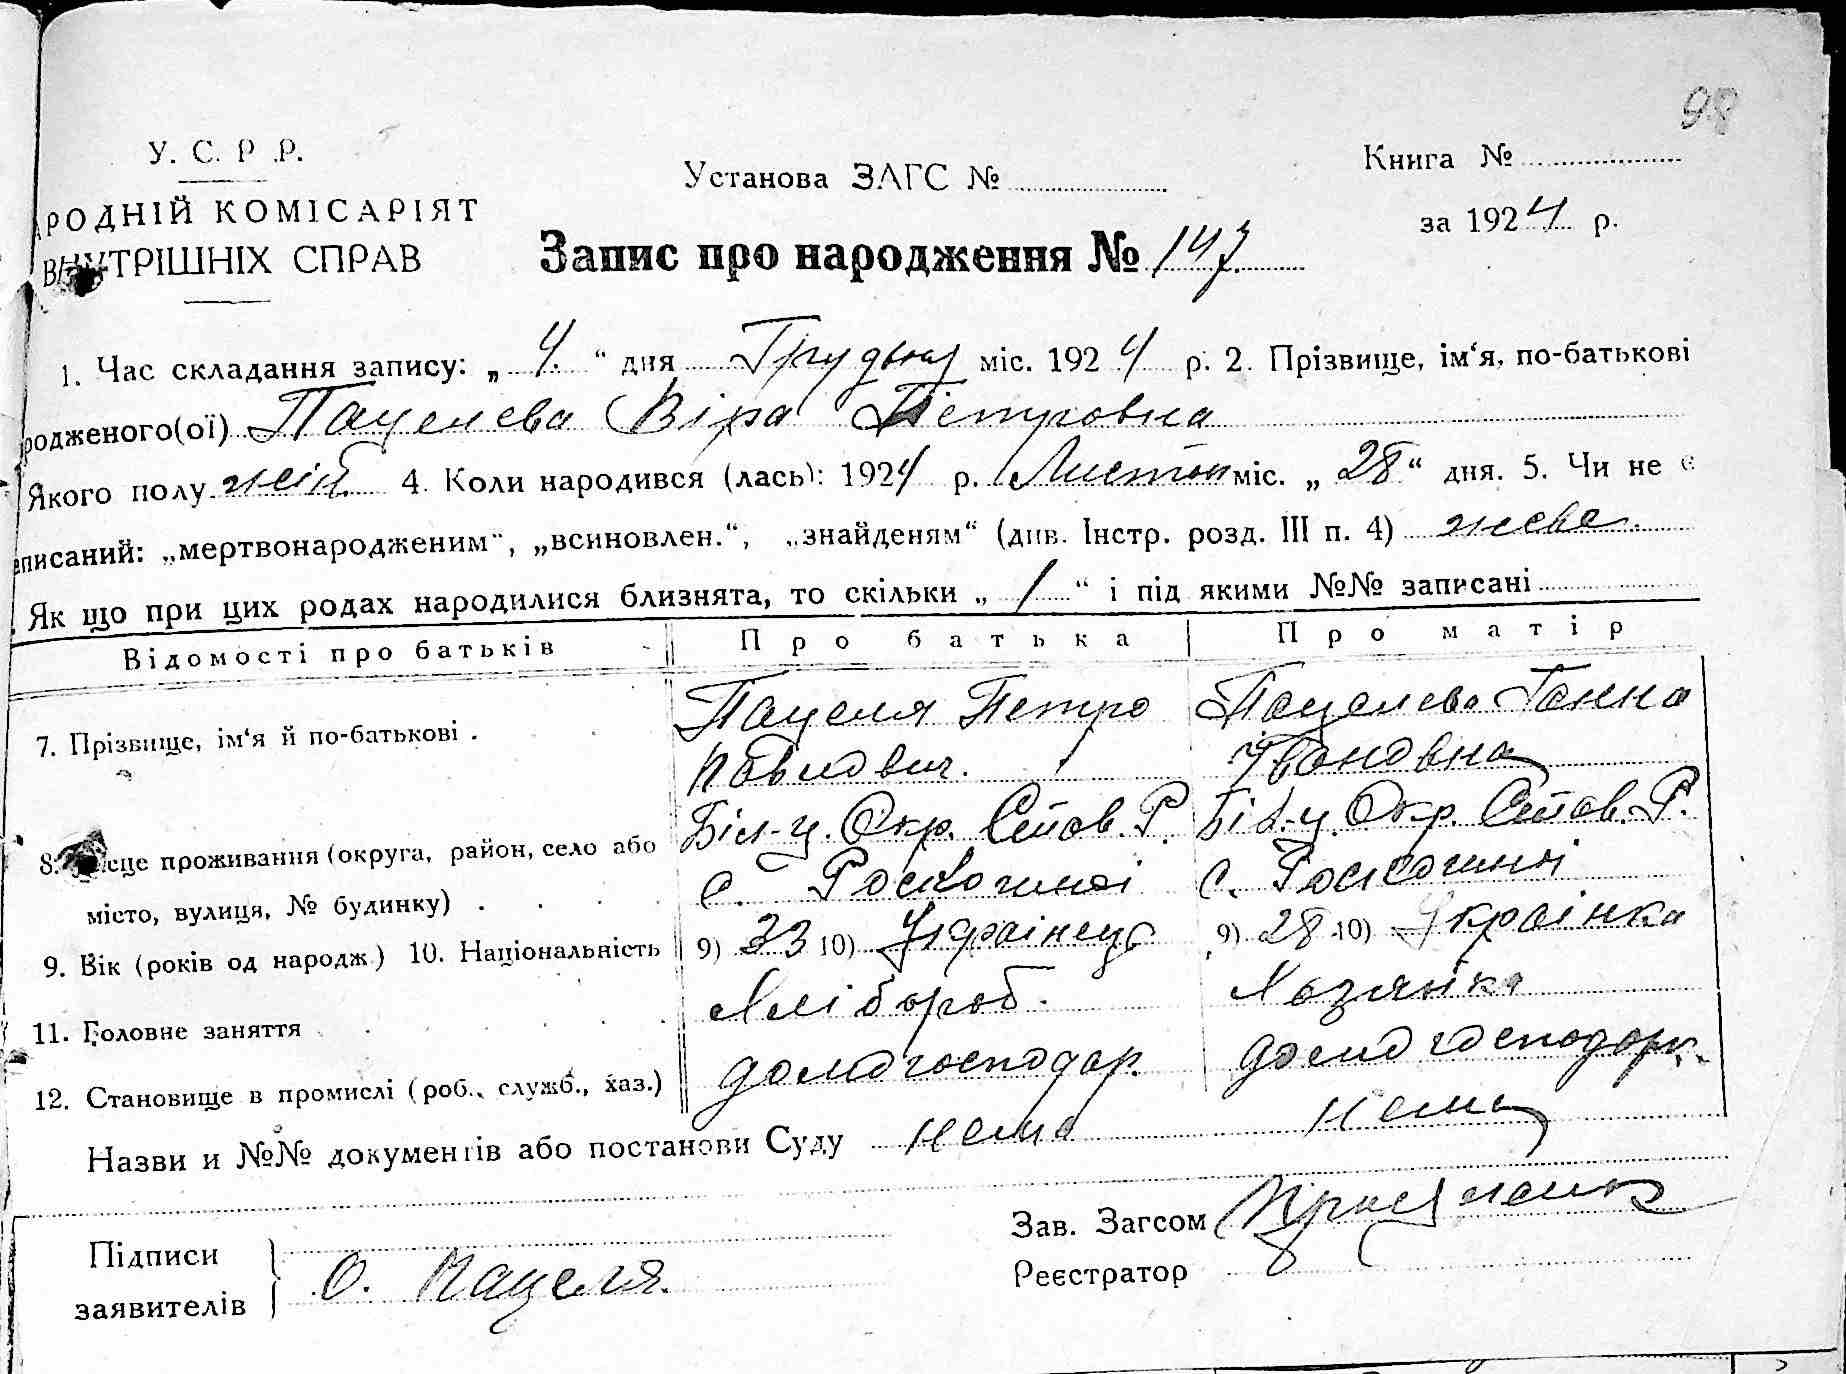 98
У. С. Р. Р.
РОДНІЙ КОМІСАРІЯТ
ВНУТРІШНІХ СПРАВ
Установа ЗАГС №
Книга №
за 1924 р.
Запис про народження № 147
1. Час складання запису: „ 4. “ дня Грудня міс. 1924 р. 2. Прізвище, ім‘я, по-батькові
родженого(ої) Пацелева Віра Петровна
Якого полу жін. 4. Коли народився (лась): 1924 р. Листоп міс. „ 28 “ дня. 5. Чи не є
писаний: „мертвонародженим“, „всиновлен.“, „знайденям“ (див. Інстр. розд. III п. 4) живе.
Як що при цих родах народилися близнята, то скільки „ 1 “ і під якими №№ записані
Відомості про батьків Про батька Про матір
7. Прізвище, ім‘я й по-батькові . Пацеля Петро Павлович. Пацелева Ганна Івановна
8. Місце проживання (округа, район, село або місто, вулиця, № будинку) . Біл-ц. Окр. Став. Р. с. Роскошної Біл.-ц. Окр. Став. Р. с. Роскошної
9. Вік (років од народж.) 10. Національність 9) 33 10) Українець 9) 28 10) Українка
11. Головне заняття Хлібороб. Хозяйка
12. Становище в промислі (роб., служб., хаз.) домогосподар. домогосподарк.
Назви и №№ документів або постанови Суду нема нема
Підписи
заявителів О. Пацеля.
Зав. Загсом
Реєстратор